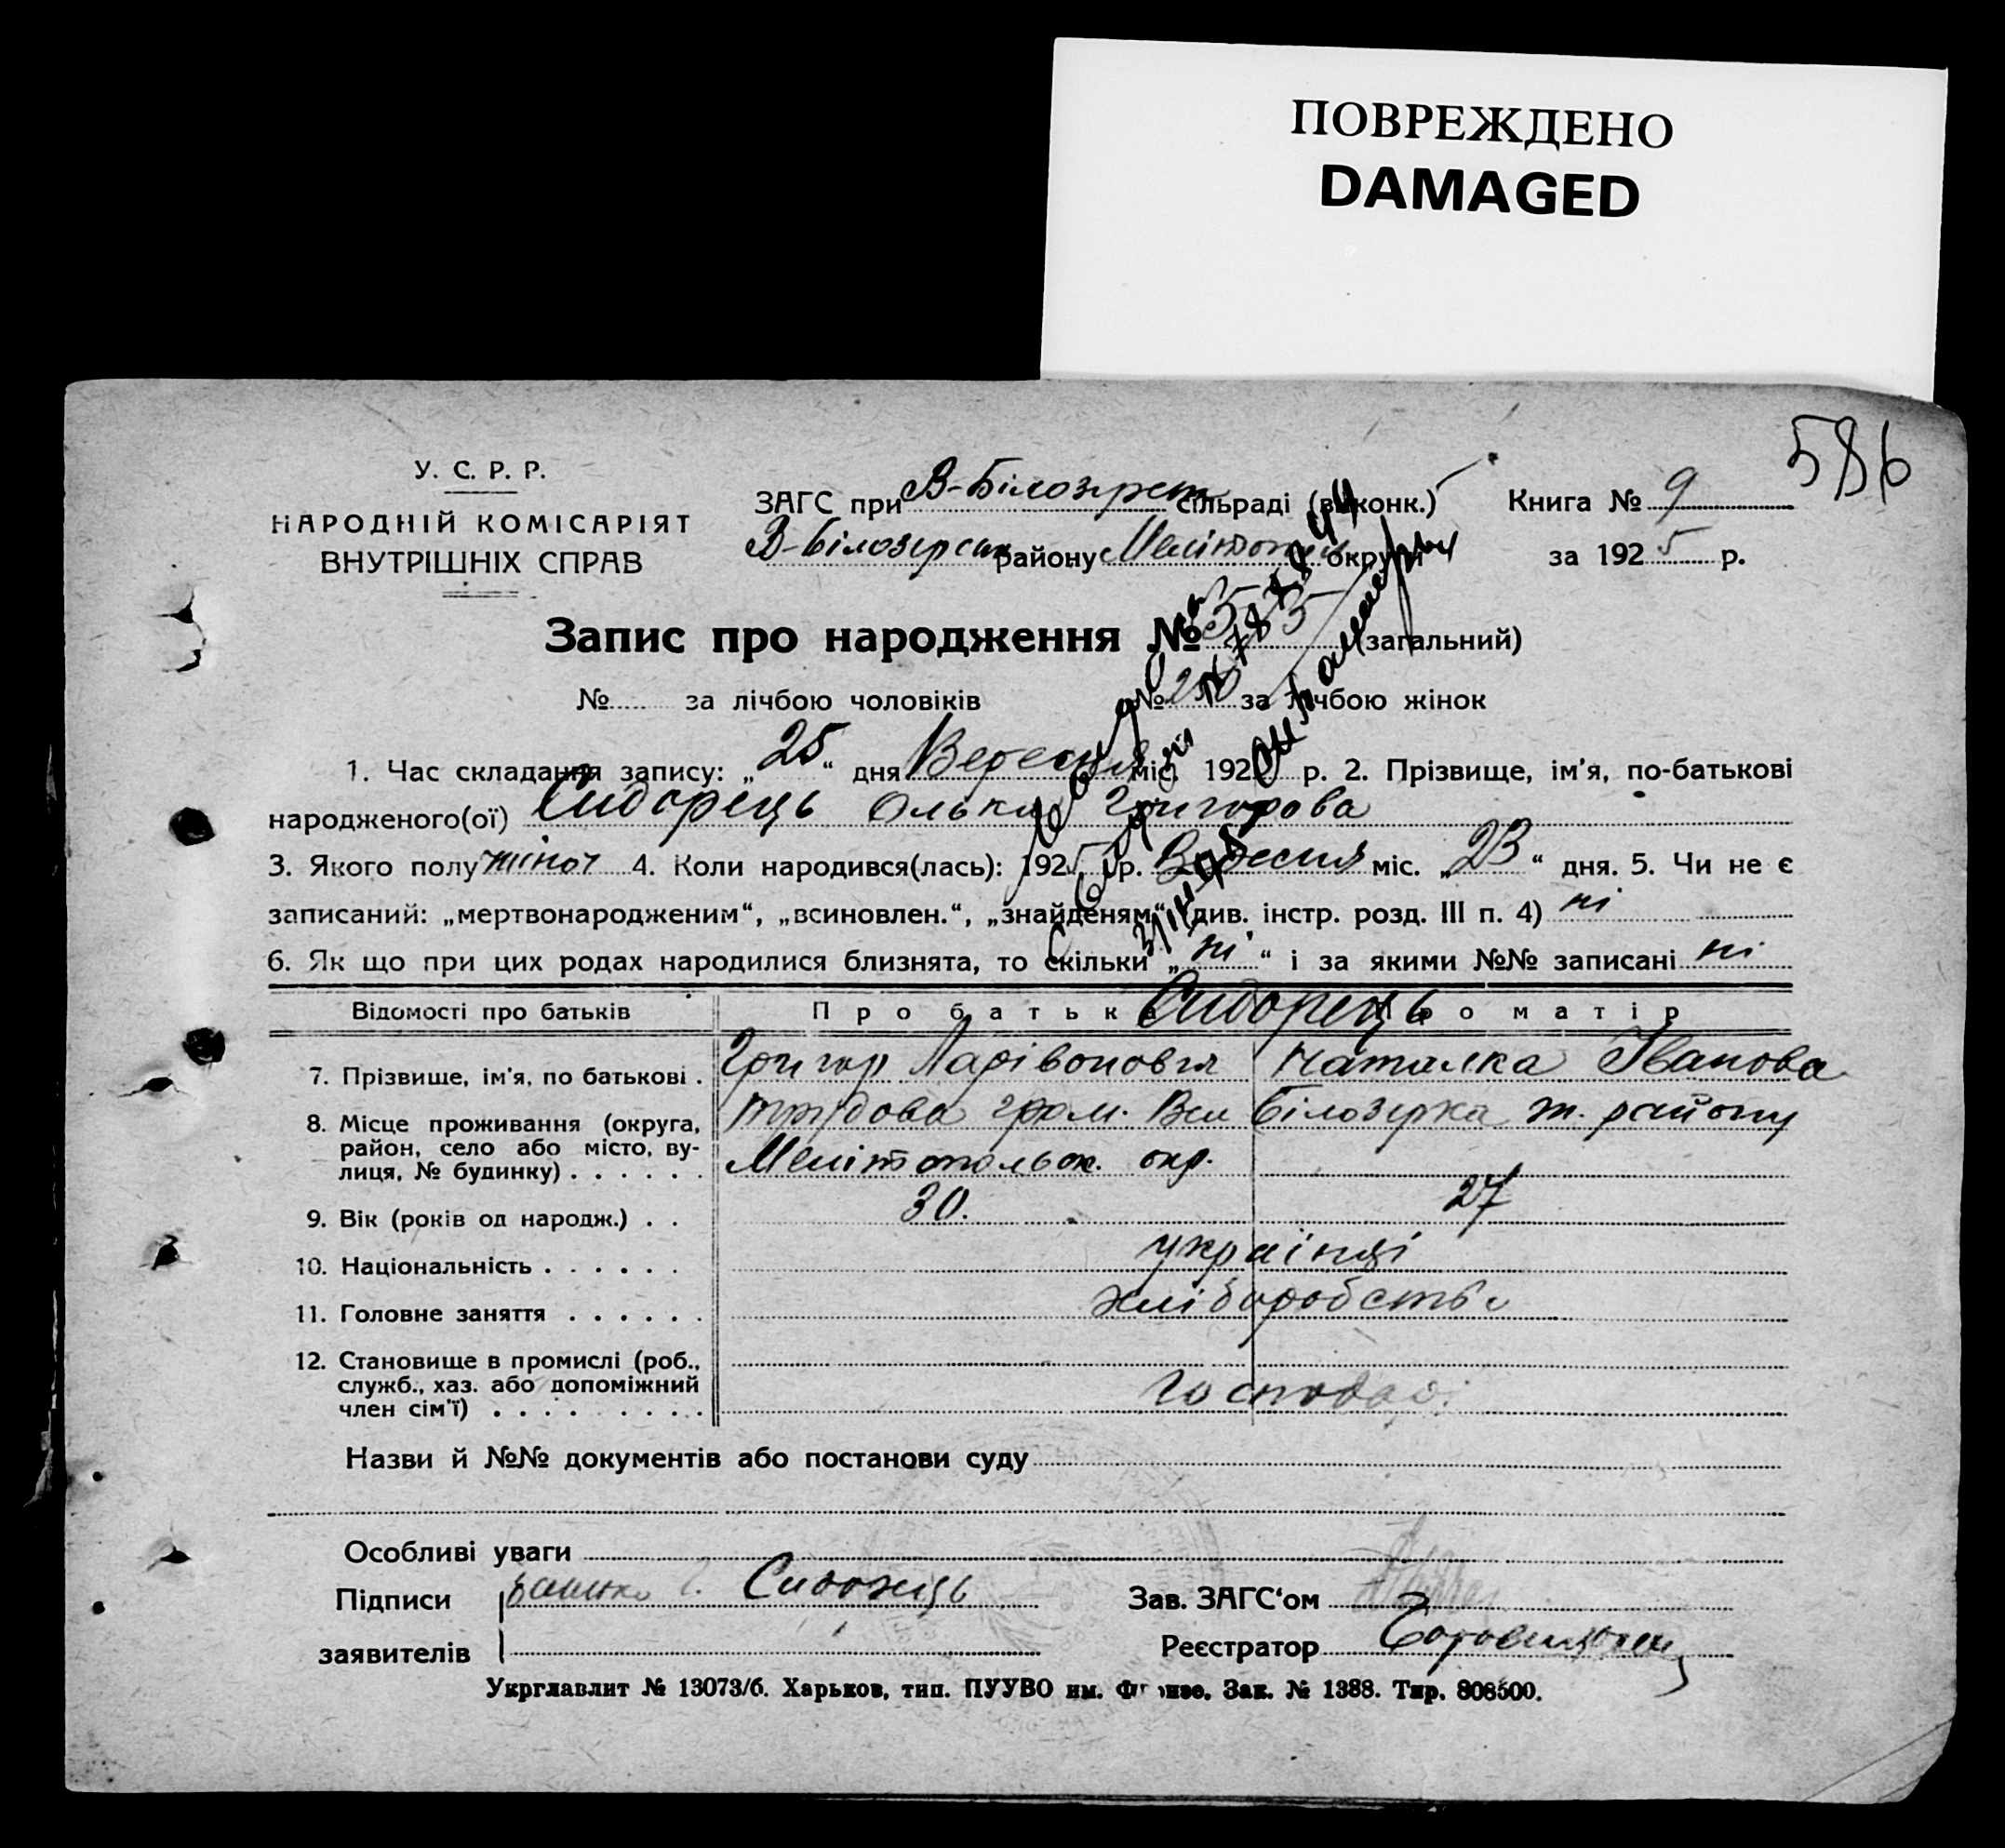 ПОВРЕЖДЕНО
DAMAGED
586
У. С. Р. Р.
НАРОДНІЙ КОМІСАРІЯТ
ВНУТРІШНІХ СПРАВ
ЗАГС при В-Білозерск сільраді (виконк.) Книга № 9
В-Білозерськ району Мелітопол округи за 1925 р.
Запис про народження № 535 (загальний)
№ за лічбою чоловіків № 250 за лічбою жінок
1. Час складання запису: „25“ дня Вересня міс. 192 р. 2. Прізвище, ім'я, по-батькові
народженого(ої) Сидорець Олька Григорова
3. Якого полу жіноч 4. Коли народився(лась): 1925 р. Вересня міс. „23“ дня. 5. Чи не є
записаний: „мертвонародженим“, „всиновлен.“, „знайденям“ (див. інстр. розд. III п. 4) ні
6. Як що при цих родах народилися близнята, то скільки „ні“ і за якими №№ записані ні
Відомості про батьків Про батька Сидорець Про матір
7. Прізвище, ім'я, по батькові . Григор Ларівонович Наталка Іванова
8. Місце проживання (округа, трудова гром. Вел Білозерка т. району
район, село або місто, ву- Мелітопольск. окр.
лиця, № будинку) . . . . . .
9. Вік (років од народж.) . . 30. 27
10. Національність . . . . . . українці
11. Головне заняття . . . . . . хліборобство
12. Становище в промислі (роб.,
служб., хаз. або допоміжний господарі
член сім'ї) . . . . . . . . .
Назви й №№ документів або постанови суду
Особливі уваги
Підписи батько Г. Сидорець Зав. ЗАГС'ом
заявителів Реєстратор
Укрглавлит № 13073/б. Харьков, тип. ПУУВО им. Фрунзе. Зак. № 1388. Тир. 808500.